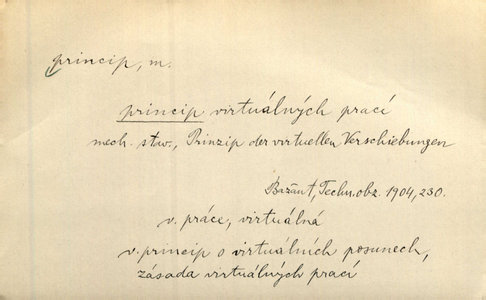 princip, m.
princip virtuálných prací
mech. stav., Prinzip der virtuellen Verschiebungen
Bažant, Techn. obz. 1904, 230.
v. práce, virtuálná
v. princip o virtuálních posunech,
zásada virtuálných prací